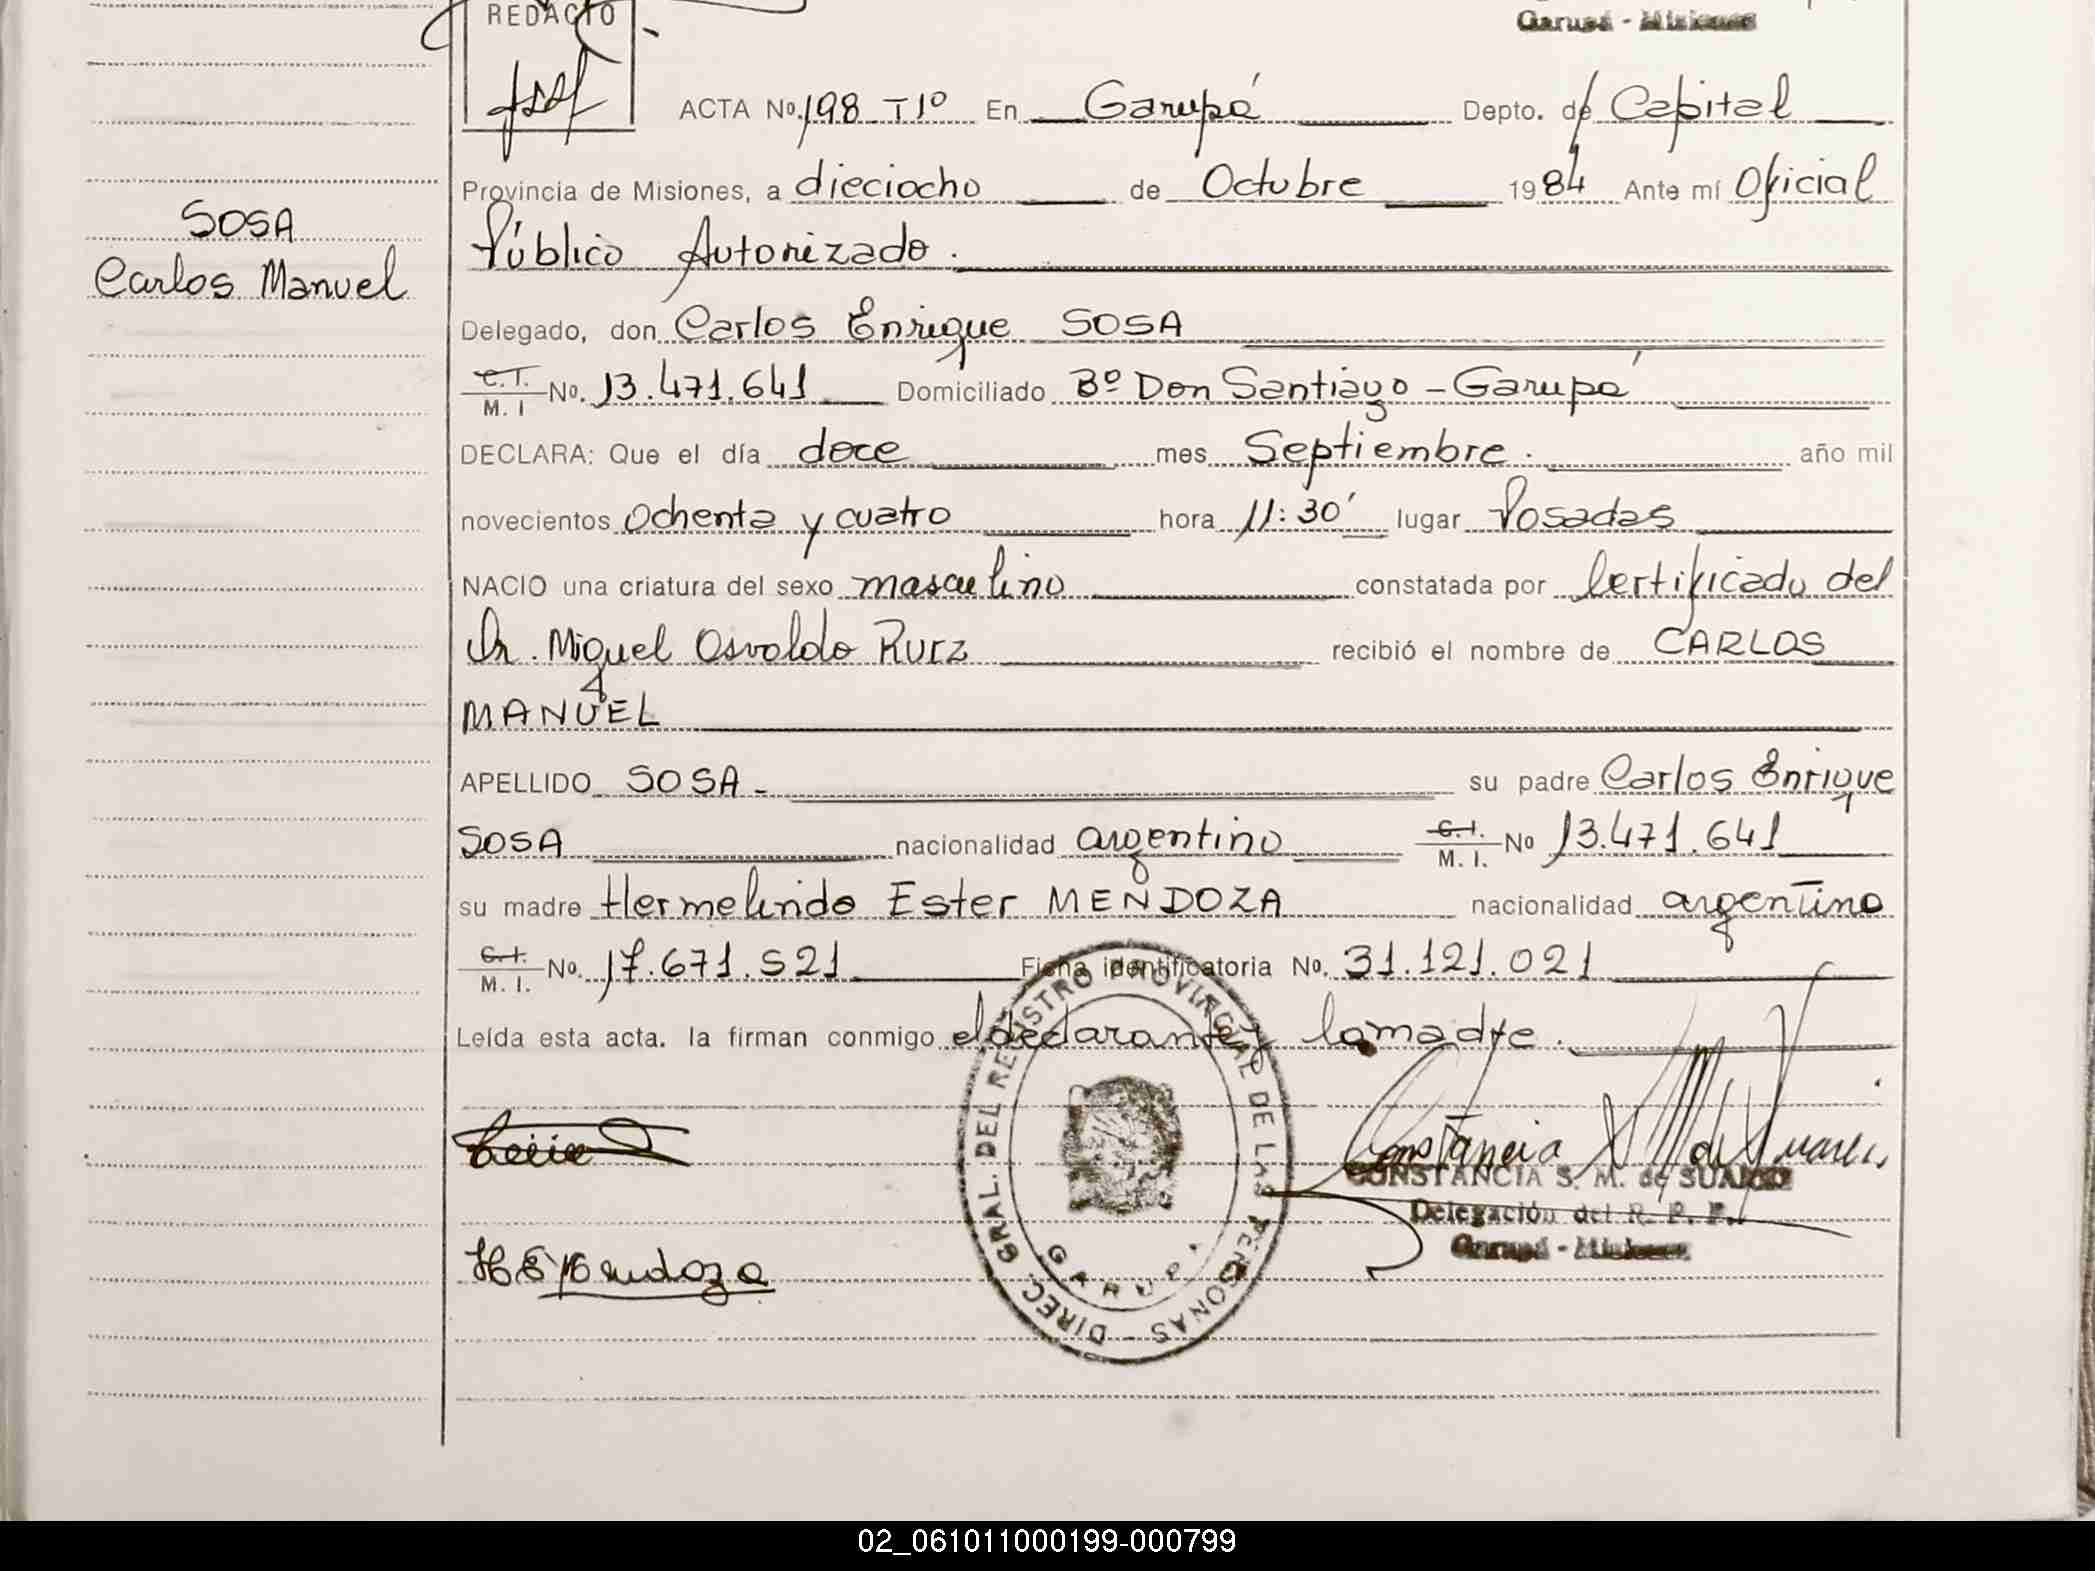 REDACTO
Garupá - Misiones
ACTA No. 198 T1º En Garupá Depto. de Capital
Provincia de Misiones, a dieciocho de Octubre 1984 Ante mí Oficial
SOSA
Público Autorizado.
Carlos Manuel
Delegado, don Carlos Enrique SOSA
C.I. M. I No. 13.471.641 Domiciliado Bº Don Santiago - Garupá
DECLARA: Que el día doce mes Septiembre. año mil
novecientos ochenta y cuatro hora 11:30' lugar Posadas
NACIO una criatura del sexo masculino constatada por Certificado del
Dr. Miguel Osvaldo Ruiz recibió el nombre de CARLOS
MANUEL
APELLIDO SOSA - su padre Carlos Enrique
SOSA nacionalidad argentino C.I. M. I. No 13.471.641
su madre Hermelinda Ester MENDOZA nacionalidad argentina
C.I. M. I. No. 17.671.521 Ficha identificatoria No. 31.121.021
Leída esta acta. la firman conmigo el declarante y la madre.
DIREC. GRAL. DEL REGISTRO PROVINCIAL DE LAS PERSONAS -
GARUPA
Constancia S M de Suarez
CONSTANCIA S. M. de SUAREZ
Delegación del R. P. P.
Garupá - Misiones
H E Mendoza
02_061011000199-000799